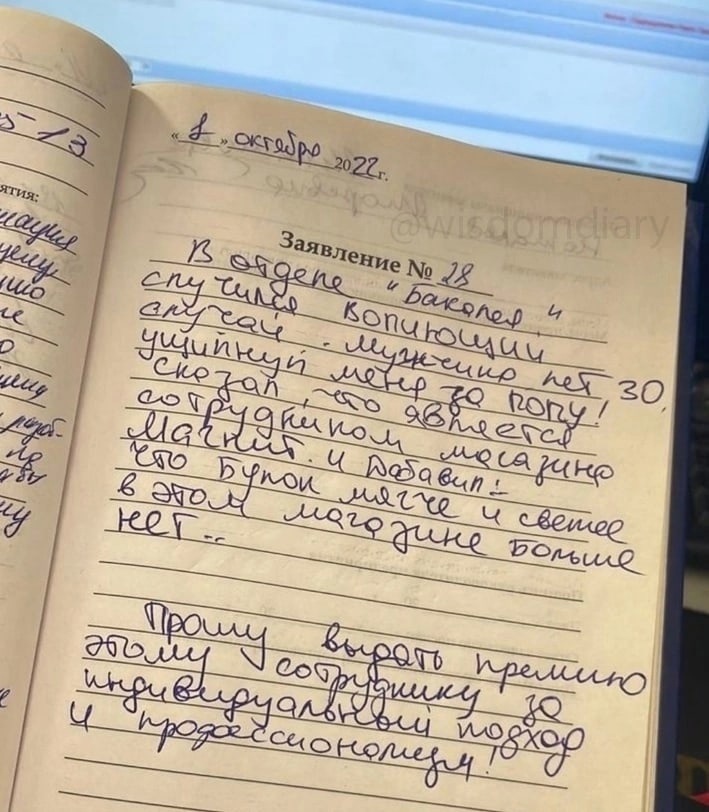 5 13
ятия:
« 1 » октября 2022 г.
@wisdomdiary
Заявление № 28
В отделе "Бакалея"
случился вопиющий
случай. Мужчина лет 30,
ущипнул меня за попу!
сказал, что является
сотрудником магазина
Магнит. и добавил:-
что Булок мягче и свежее
в этом магазине больше
нет..
Прошу выдать премию
этому сотруднику за
индивидуальный подход
и профессионализм!